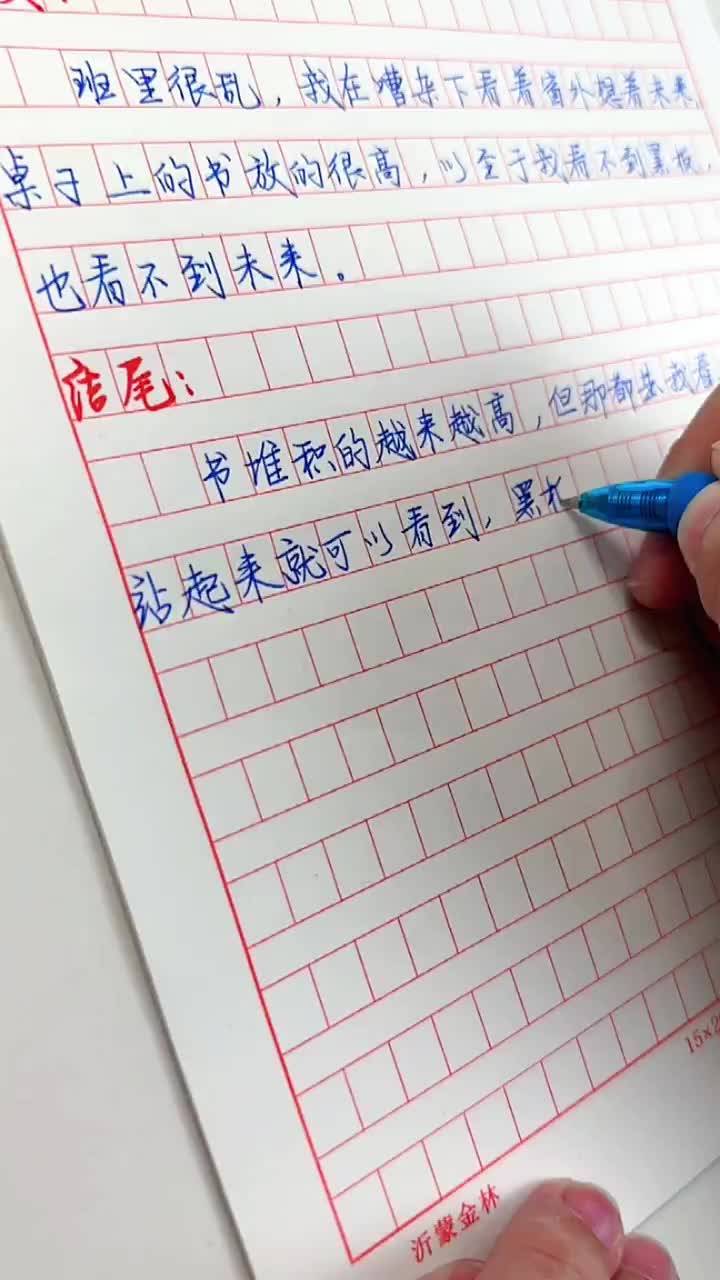 班里很乱，我在嘈杂下看着窗外想着未来，
桌子上的书放的很高，以至于我看不到黑板，
也看不到未来。
结尾：
书堆积的越来越高，但那都是我看
站起来就可以看到，黑
15×2
沂蒙金林